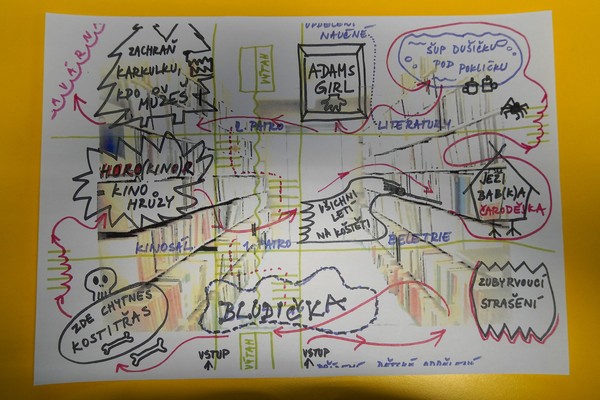 ZACHRAŇ
KARKULKU,
KDO
MŮŽEŠ
VÝTAH
NAUČNÉ
ADAMS
GIRL
ŠUP DUŠIČKU
POD
POKLIČKU
2. PATRO
LITERATURY
HOROR
KINO
HRŮZY
VŠICHNI
LETÍ
NA KOŠTĚTI
JEŽI
BAB(K)A
ČARODĚJKA
KINOSÁL
1. PATRO
BELETRIE
ZDE CHYTNEŠ
KOSTITŘAS
BLUDIČKA
ZUBYRVOUCÍ
STRAŠENÍ
VSTUP
VÝTAH
VSTUP
DĚTSKÉ ODDĚLENÍ